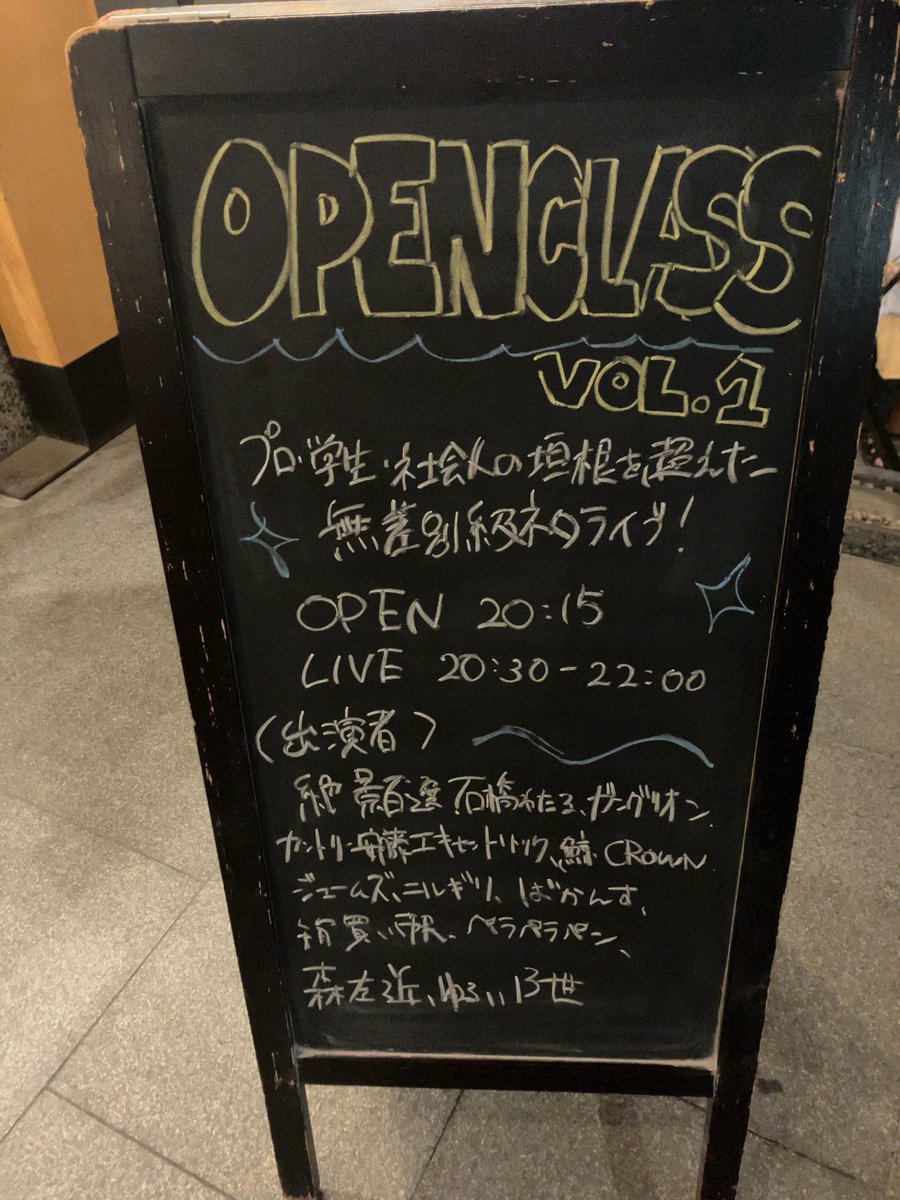 OPENCLASS
VOL.1
プロ・学生・社会人の垣根を超えた
無差別級ネタライブ!
OPEN 20:15
LIVE 20:30-22:00
(出演者)
絶景百選 石橋わたる、ガングリオン、
カントリー安藤エキセントリック、鯨CROWN
ジェームズ、ニルギリ、ばかんす、
箱買い 、ペラペラペン、
森左近、ゆるい13世